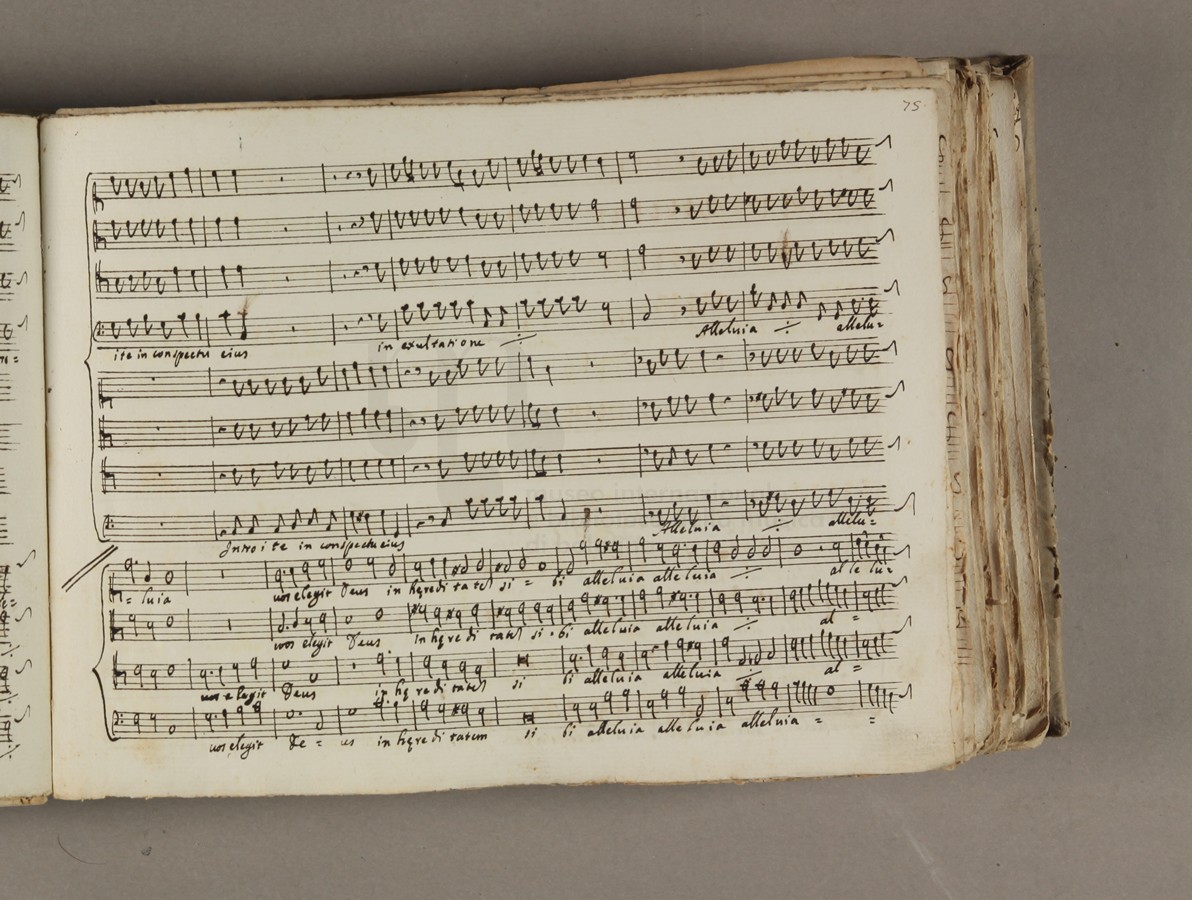 75
ite in conspectu eius in exultatione Alleluia allelu=
Introite in conspectu eius Alleluia allelu=
= luia vos elegit Deus in hęreditatem si = bi alleluia alleluia al le lu=
vos elegit Deus in hęreditatem si = bi alleluia alleluia al =
vos elegit Deus in hęreditatem si bi alleluia alleluia al =
vos elegit De = us in hęreditatem si bi alleluia alleluia alleluia = =